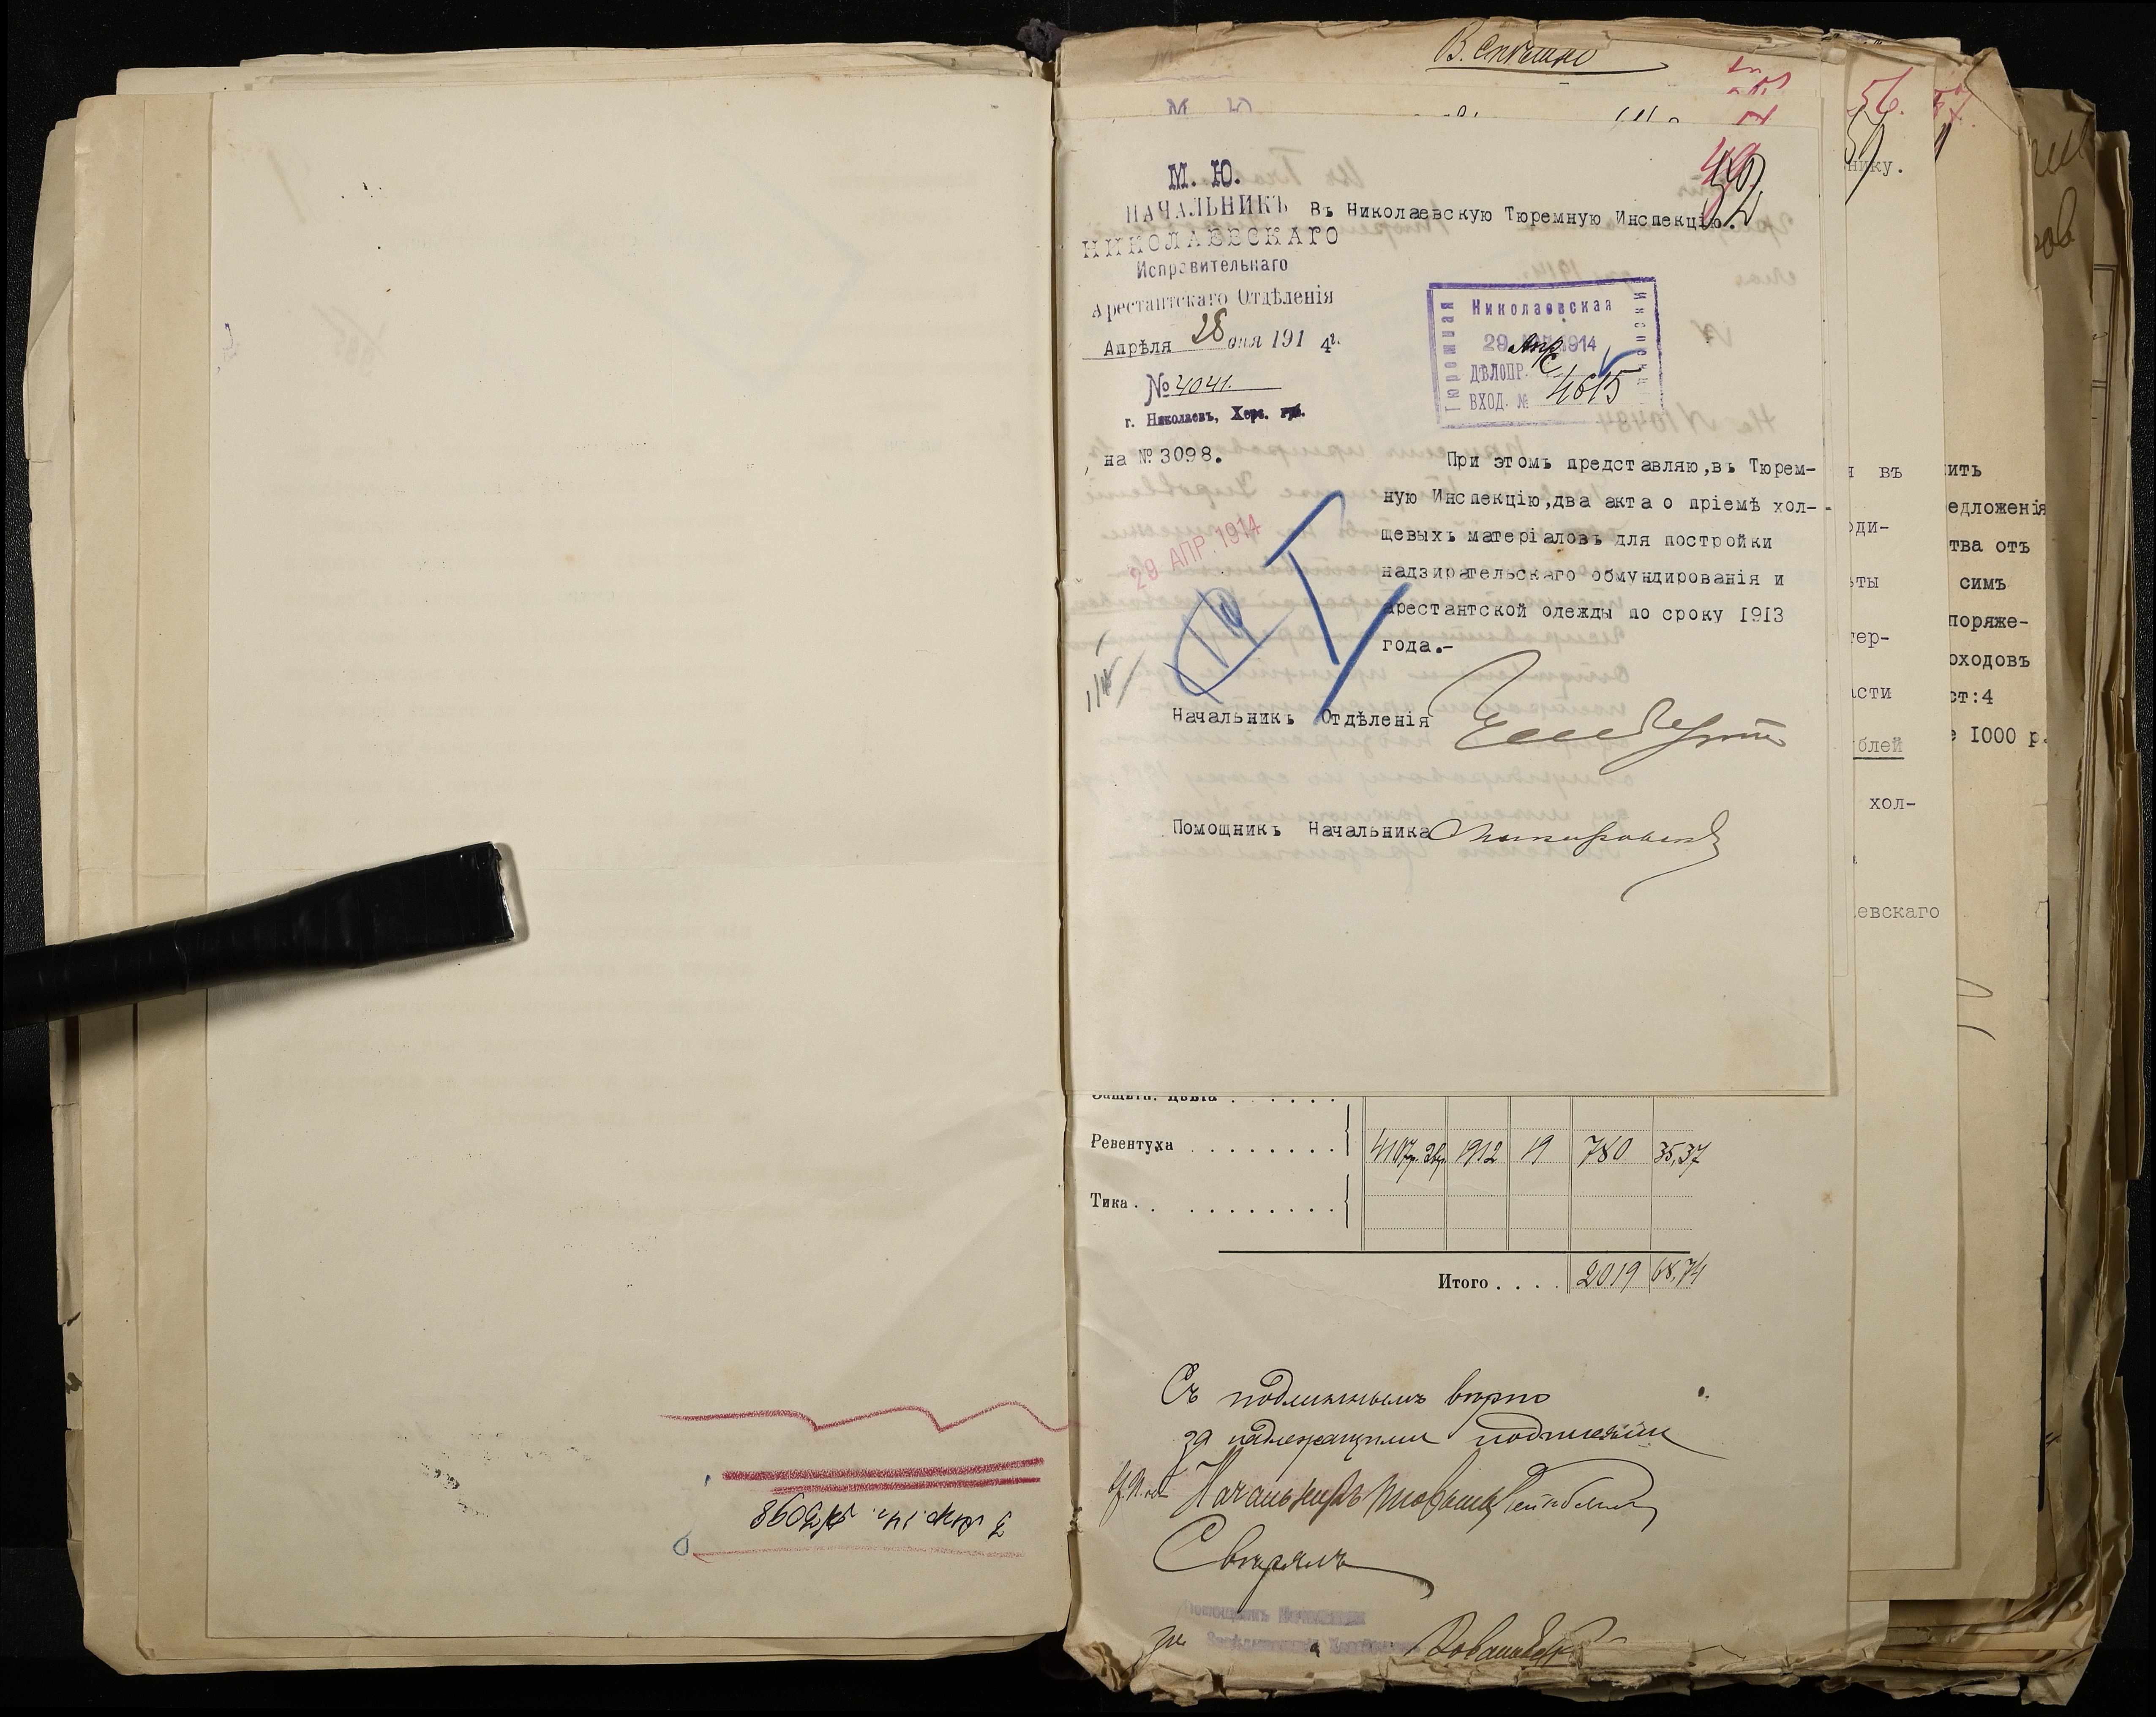 В. Спѣшно
М. Ю.
НАЧАЛЬНИКЪ
НИКОЛАЕВСКАГО
Исправительнаго
Арестантскаго Отдѣленія
Апрѣля 28 дня 1914 г.
№ 4041.
г. Николаевъ, Херс. губ.
на № 3098.
Въ Николаевскую Тюремную Инспекцію.
Николаевская
Тюремная
Инспекція
29 Апр 1914
ДѢЛОПР.
ВХОД. № 4615
29 АПР. 1914
При этомъ представляю,въ Тюрем-
ную Инспекцію,два акта о пріемѣ хол-
щевыхъ матеріаловъ для постройки
надзирательскаго обмундированія и
арестантской одежды по сроку 1913
года.-
Начальникъ Отдѣленія
Помощникъ Начальника
Защитн. цвѣта . . . . .
Ревентуха . . . . . . . . 1912 19 780 35,37
Тика . . . . . . . . . .
Итого . . . . 2019 68,74
Съ подлиннымъ вѣрно
за надлежащими подписями
Начальникъ
Свѣрялъ
Помощникъ Начальника
56.
нику.
въ
оди-
ты
тер-
асти
блей
хол-
евскаго
ить
едложенія
тва отъ
симъ
поряже-
оходовъ
ст:4
е 1000 р.
3 Апр. 14 г. № 3098